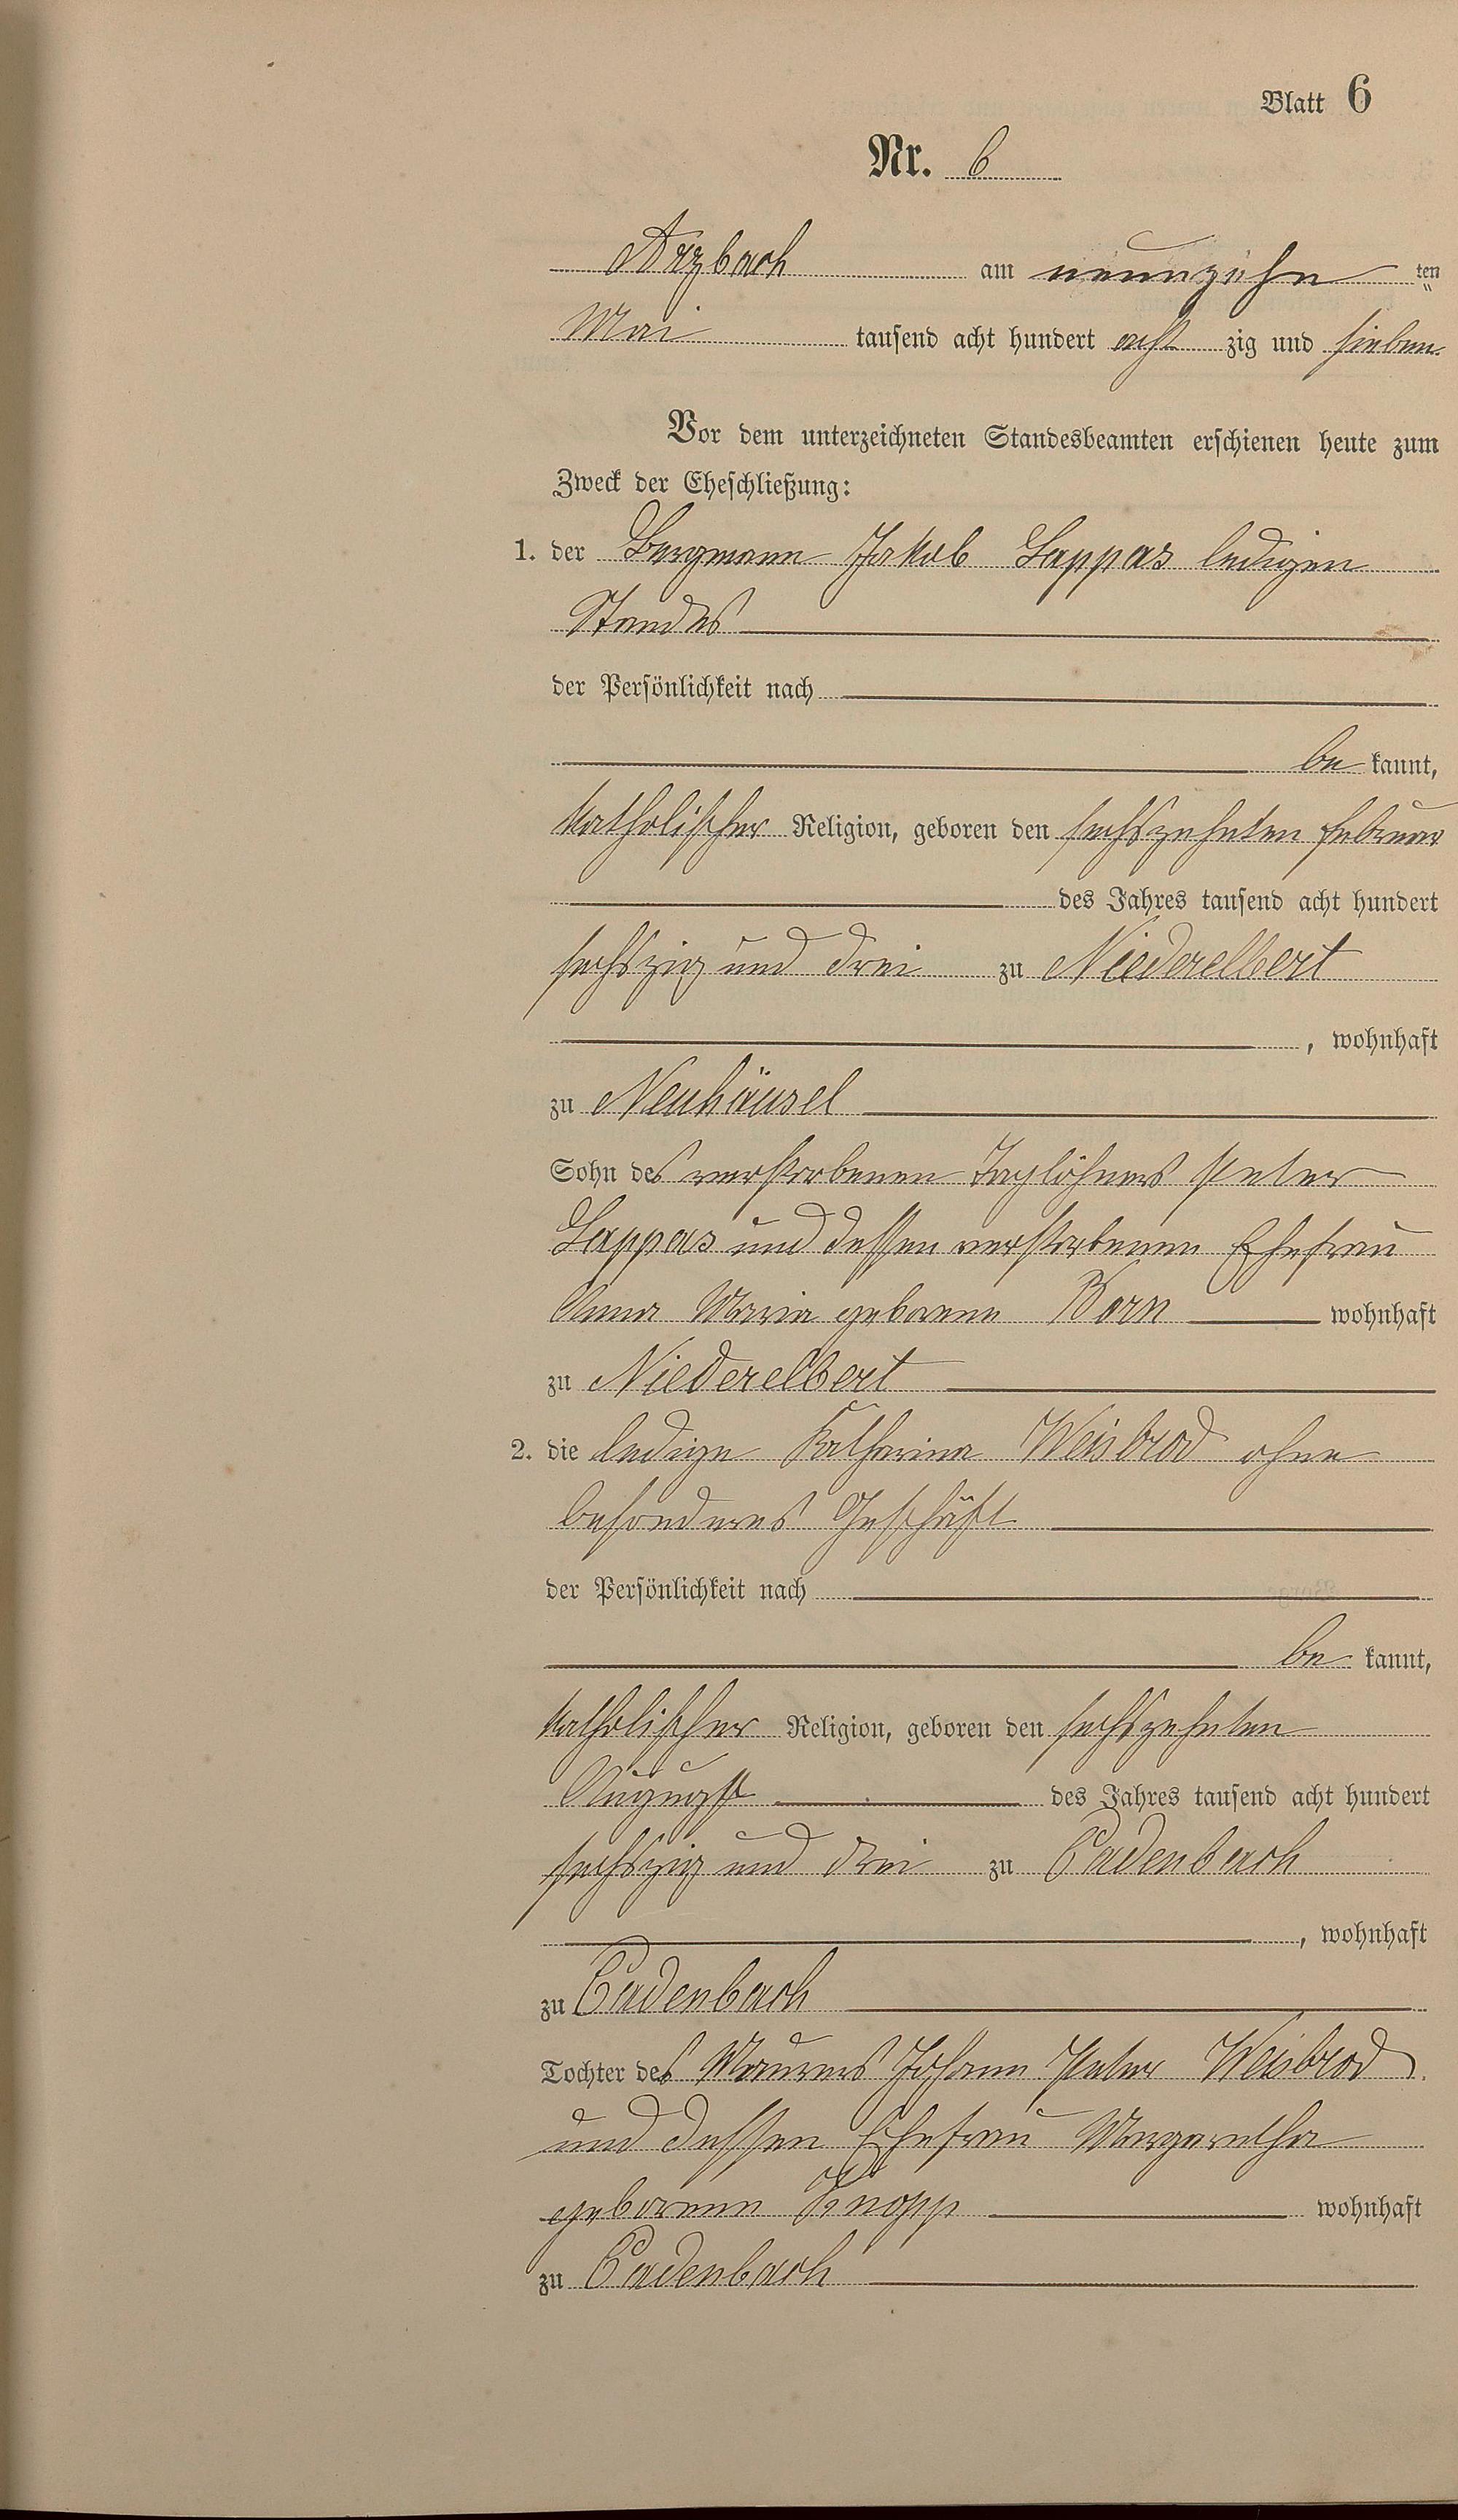 Blatt 6
Nr. 6
Arzbach am neunzehn ten
Mai tausend acht hundert acht zig und sieben
Vor dem unterzeichneten Standesbeamten erschienen heute zum
Zweck der Eheschließung:
1. der Bergmann Jakob Lappas ledigen
Standes
der Persönlichkeit nach
be kannt,
katholischer Religion, geboren den sechszehnten Februar
des Jahres tausend acht hundert
sechszig und drei zu Niederelbert
, wohnhaft
zu Neuhäusel
Sohn des verstorbenen Taglöhners Peter
Lappas und dessen verstorbenen Ehefrau
Anna Maria geborene Born wohnhaft
zu Niederelbert
2. die ledige Katharina Weisbrod ohne
besonderes Geschäft
der Persönlichkeit nach
be kannt,
katholischer Religion, geboren den sechszehnten
August des Jahres tausend acht hundert
sechszig und drei zu Cadenbach
, wohnhaft
zu Cadenbach
Tochter des Maurers Johann Peter Weisbrod
und dessen Ehefrau Margaretha
geborenen Knopp wohnhaft
zu Cadenbach